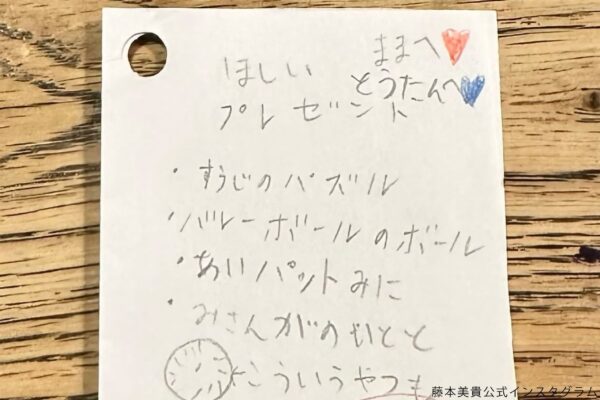 ままへ
ほしい
とうたんへ
プレゼント
・すうじのパズル
・バレーボールのボール
・あいパットみに
・みさんがのひもと
こういうやつも
藤本美貴公式インスタグラム